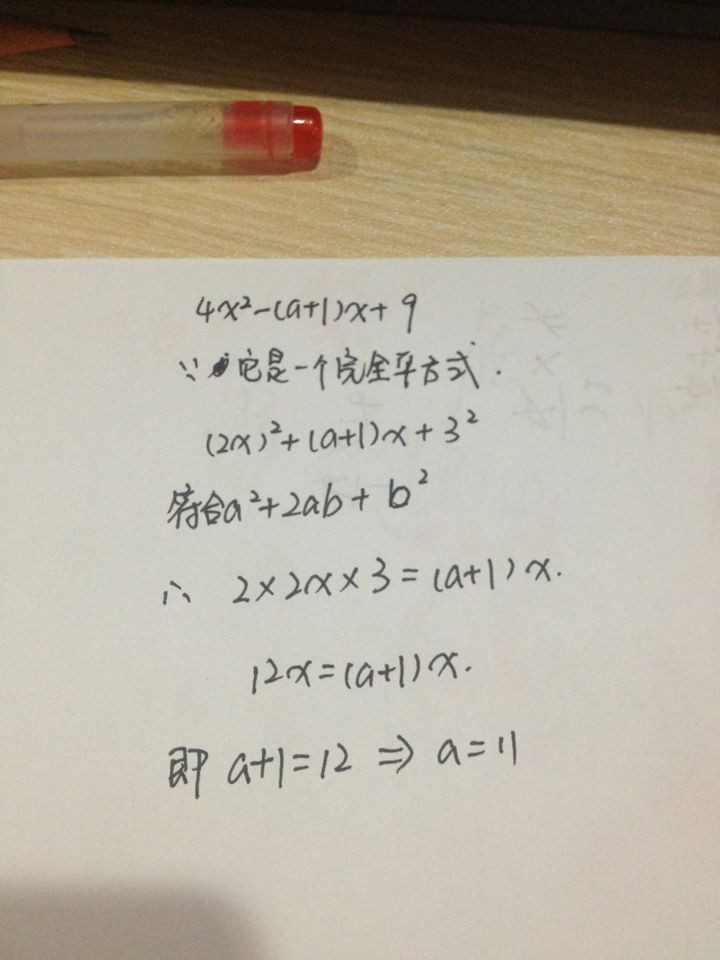 4x²-(a+1)x+9
∵ 它是一个完全平方式.
(2x)²+(a+1)x+3²
符合a²+2ab+b²
∴ 2×2x×3=(a+1)x.
12x=(a+1)x.
即 a+1=12 ⇒ a=11